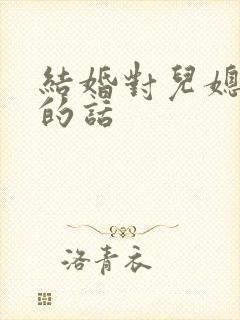 結婚對兒媳
的話
洛青衣